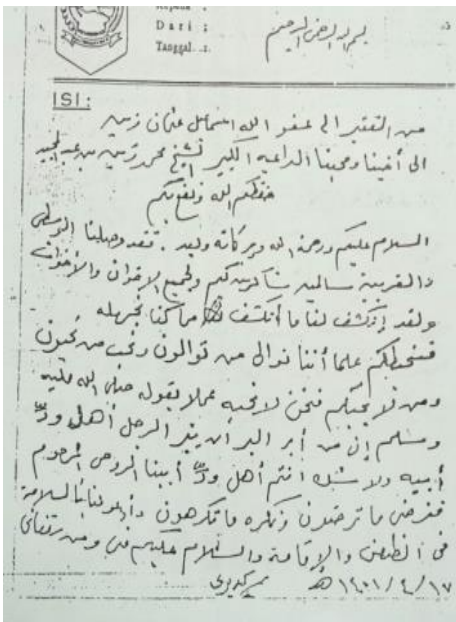 Kepada :
Dari :
Tanggal :
بسم الله الرحمن الرحيم
ISI :
من الفقير الى عفو الله اسماعيل عثمان زين
الى أخينا ومحبنا الداعيه الكبير الشيخ محمد زين بن عبد المجيد
حفظكم الله ونفع بكم
السلام عليكم ورحمة الله وبركاته وبعد . فقد وصلنا الى
والقرية سالمين شاكرين لكم ولجميع الاخوان والأخوات
ولقد إنكشف لنا ما أنكشف مما كنا نجهله
فنحيطكم علما أننا نوالى من توالون ونحب من تحبون
ومن لا يحبكم فنحن لا نحبه عملا بقوله صلى الله عليه
وسلم إن من أبر البر أن يبر الرجل أهل ودّ
أبيه ولا شك انتم أهل ودّ أبينا الروحى المرحوم
فنرضى ما ترضون ونكره ما تكرهون وأدعو لنا بالسلامة
فى الظعن والإقامة والسلام عليكم منى ومن رفقائى
١٧/٤/١٤٠١ هـ